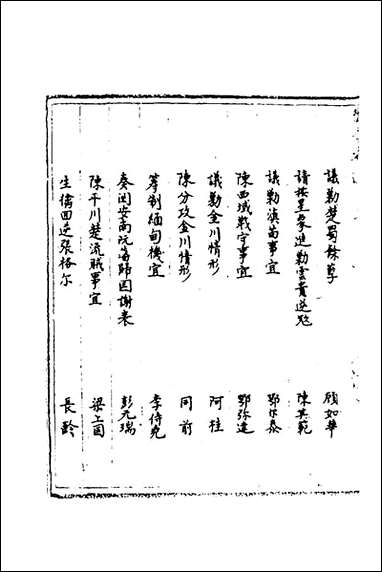 議勦楚蜀餘孽 顧如華
請按星象進勦雲貴逆賊 陳其範
議勦滇苗事宜 鄂尔泰
陳西域戰守事宜 鄂弥達
議勦金川情形 阿桂
陳分攻金川情形 同前
籌制緬甸機宜 李侍堯
奏閲安南阮 歸因謝表 彭元瑞
陳平川楚流賊事宜 梁上国
生擒回逆張格尔 長齡